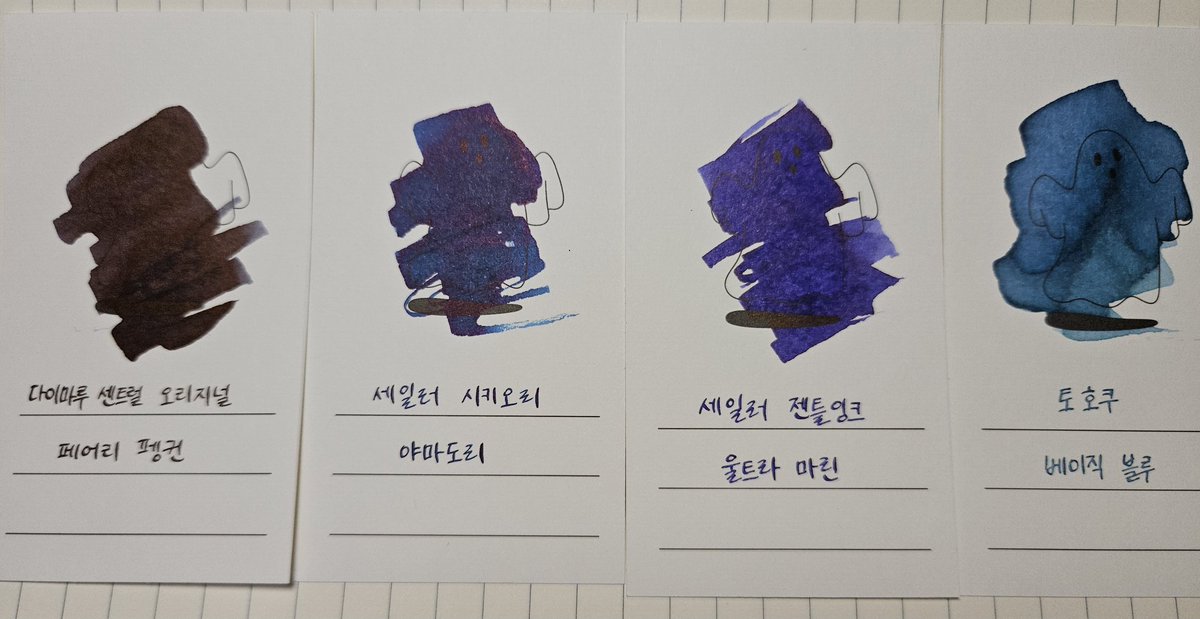 다이마루 센트럴 오리지널
페어리 펭귄
세일러 시키오리
야마도리
세일러 젠틀잉크
울트라 마린
토호쿠
베이직 블루